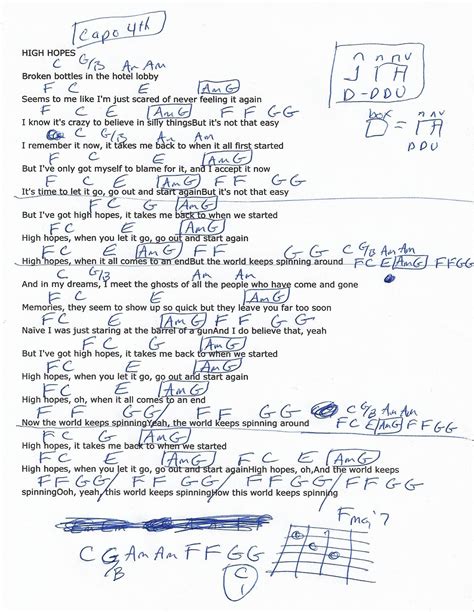 Capo 4th
HIGH HOPES
C G/B Am Am
Broken bottles in the hotel lobby
F C E Am G
Seems to me like I'm just scared of never feeling it again
F C E Am G F F G G
I know it's crazy to believe in silly thingsBut it's not that easy
C G/B Am Am
I remember it now, it takes me back to when it all first started
F C E Am G
But I've only got myself to blame for it, and I accept it now
F C E Am G F F G G
It's time to let it go, go out and start againBut it's not that easy
F C G Am G
But I've got high hopes, it takes me back to when we started
F C E Am G
High hopes, when you let it go, go out and start again
F C E Am G F F G G C G/B Am Am
High hopes, when it all comes to an endBut the world keeps spinning around F C E Am G F F G G
C G/B Am Am
And in my dreams, I meet the ghosts of all the people who have come and gone
F C E Am G
Memories, they seem to show up so quick but they leave you far too soon
F C E Am G F F G G
Naïve I was just staring at the barrel of a gunAnd I do believe that, yeah
F C G Am G
But I've got high hopes, it takes me back to when we started
F C E Am G
High hopes, when you let it go, go out and start again
F C E Am G
High hopes, oh, when it all comes to an end
F F G G F F G G C G/B Am Am
Now the world keeps spinningYeah, the world keeps spinning around F C E Am G F F G G
F C G Am G
High hopes, it takes me back to when we started
F C E Am G F C E Am G
High hopes, when you let it go, go out and start againHigh hopes, oh,And the world keeps
F F G G / F F G G / F F G G / F F G G
spinningOoh, yeah, this world keeps spinningHow this world keeps spinning
C G/B Am Am F F G G C
1
Fmaj7
D-DDU
box =
DDU